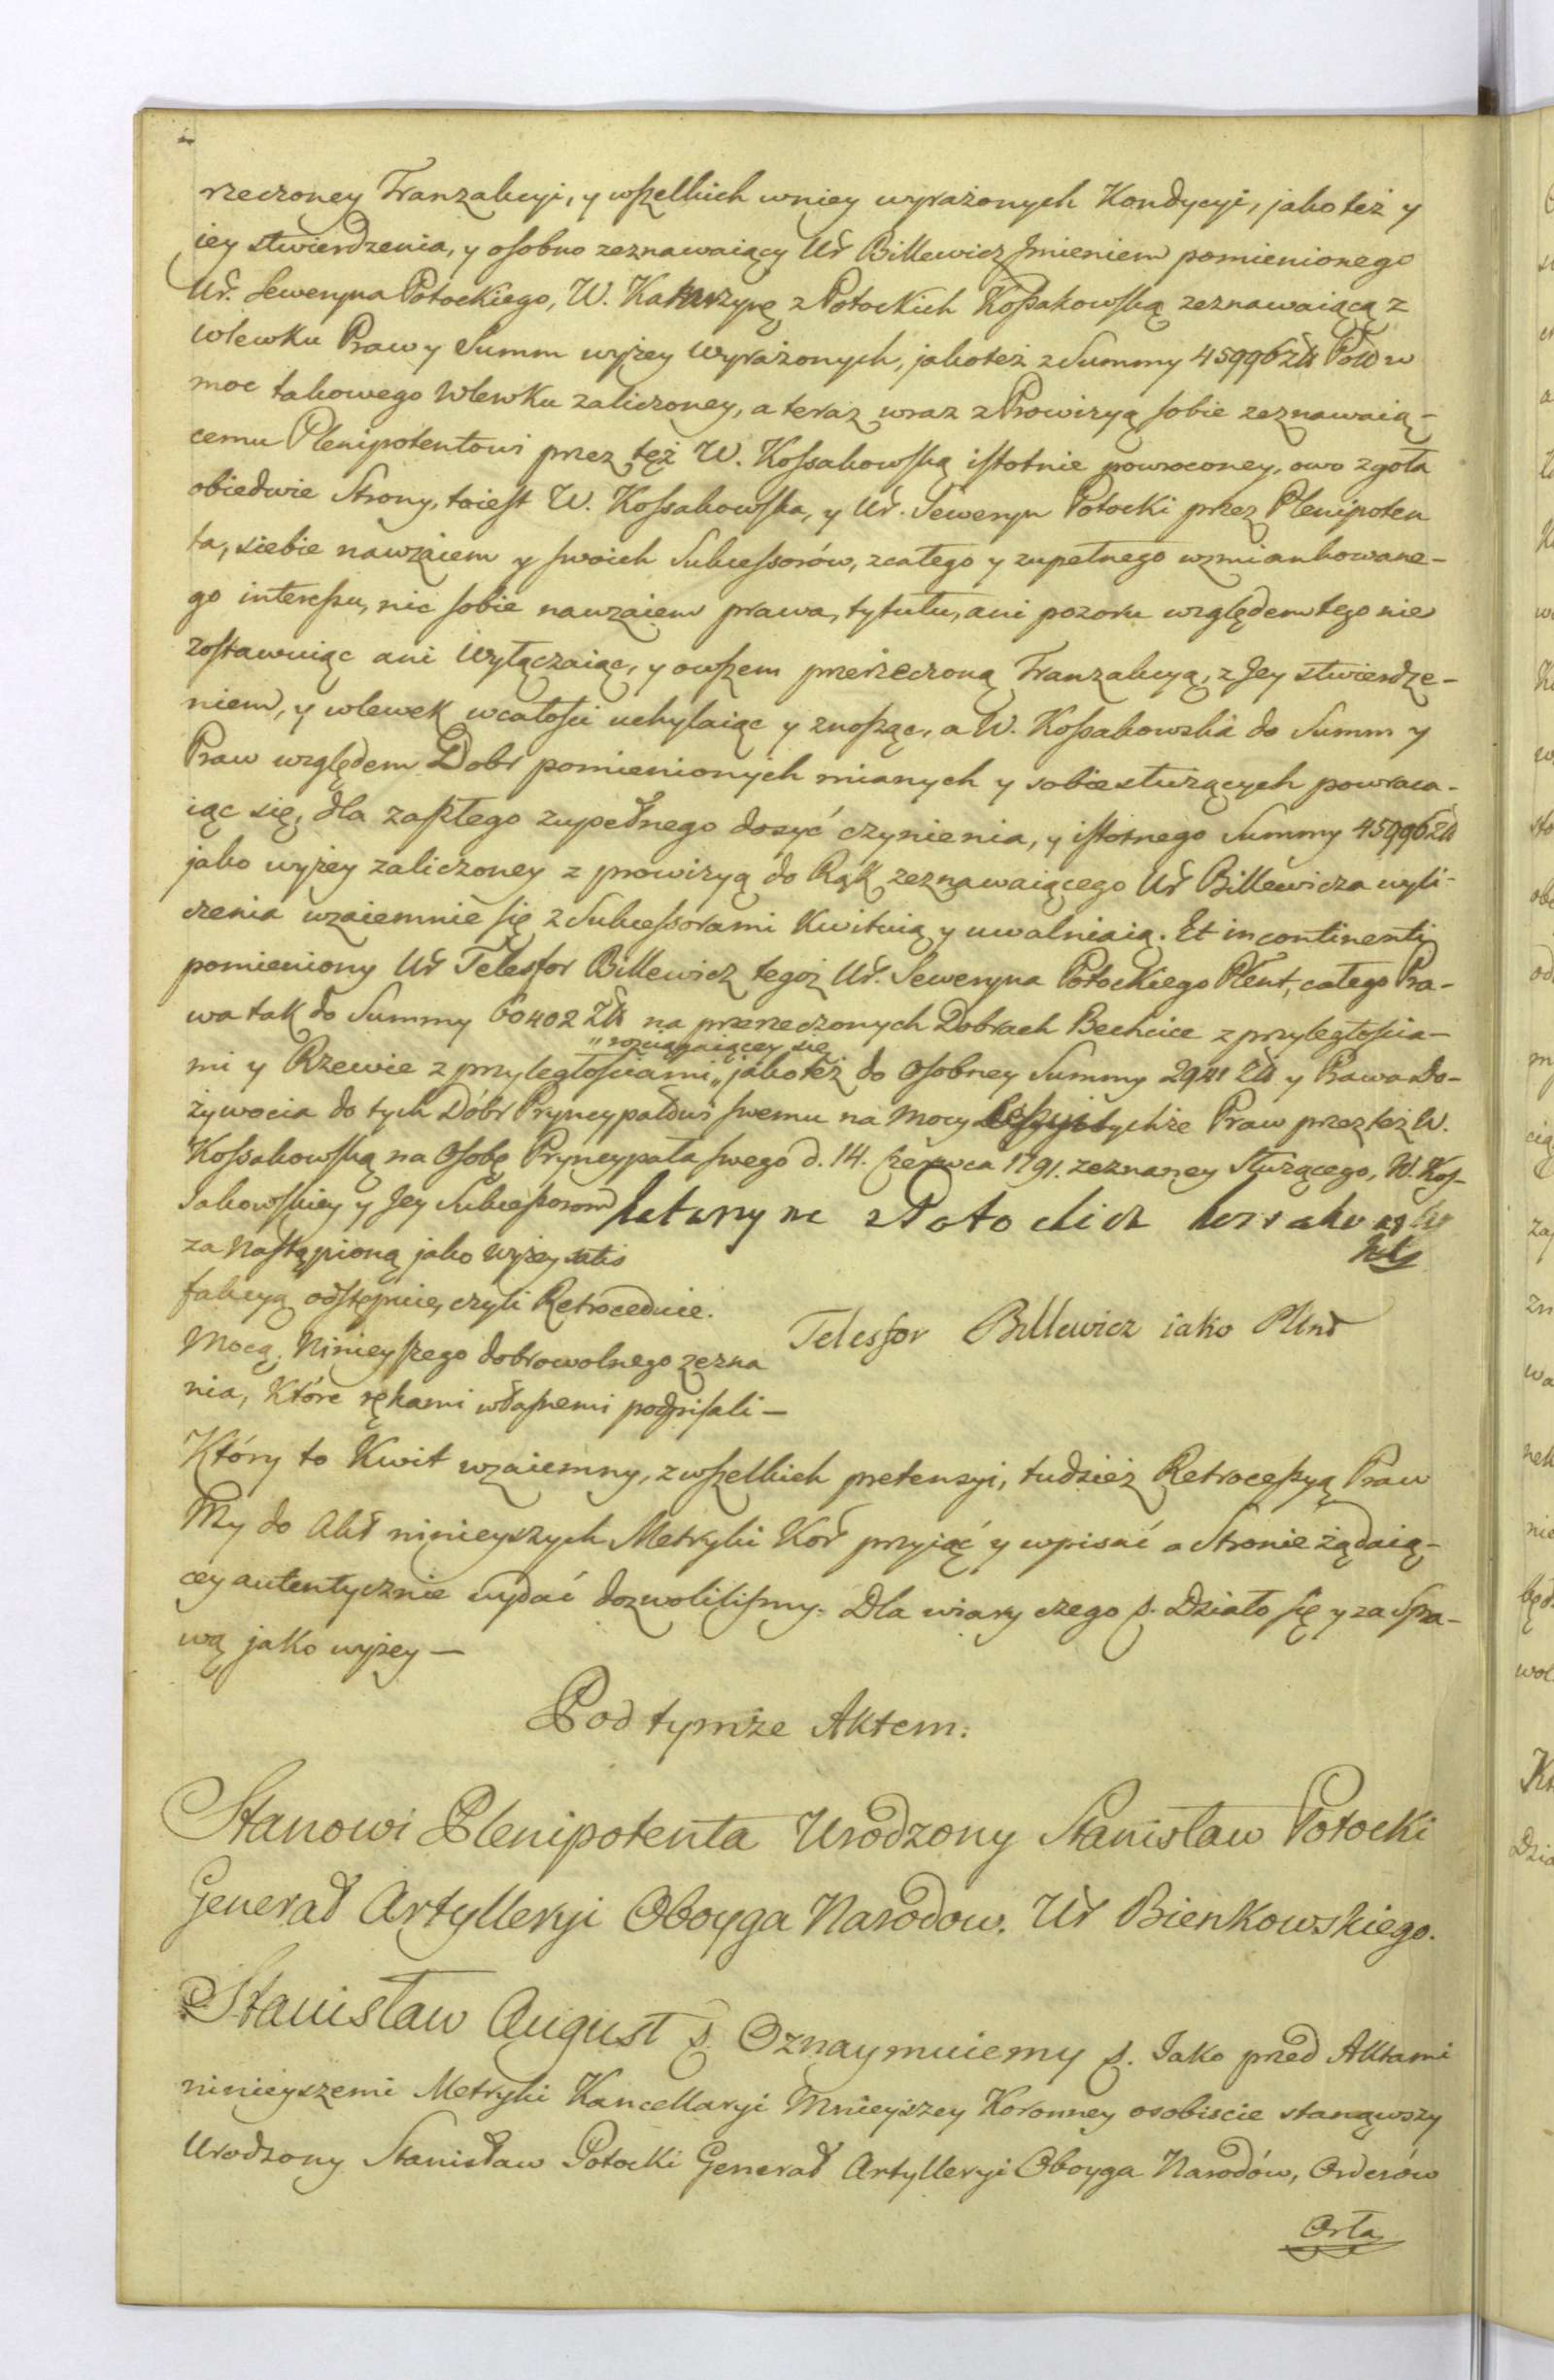 rzeczoney Tranzakcyi, y wszelkich wniey wyrażonych Kondycyi, jako też y
iey stwierdzenia, y osobno zeznawaiący Ur Billewicz Jmieniem pomienionego
Ur. Seweryna Potockiego, W. Katarzynę z Potockich Kossakowską zeznawaiącą z
wlewku Praw y Summ wyżey wyrażonych, jako też z Summy 45996 Zł Pol w
moc takowego Wlewku zaliczoney, a teraz wraz z Prowizyą sobie zeznawaią-
cemu Plenipotentowi przez też W. Kossakowską istotnie powroconey, owo zgoła
obiedwie Strony, toiest W. Kossakowska, y Ur. Seweryn Potocki przez Plenipoten
ta, siebie nawzaiem y swoich Sukcessorów, z całego y zupełnego wzmiankowane-
go interessu, nic sobie nawzaiem prawa, tytułu, ani pozoru względem tego nie
zostawuiąc ani Wyłączaiąc, y owszem przerzeczoną Tranzakcyą, z Jey stwierdze-
niem, y wlewek wcałości uchylaiąc y znosząc, a W. Kossakowska do Summ y
Praw względem Dobr pomienionych mianych y sobie służących powraca-
iąc się, dla zaszłego zupełnego dosyć czynienia, y istotnego Summy 45996 Zł
jako wyżey zaliczoney z prowizyą do Rąk zeznawaiącego Ur Billewicza wyli-
czenia wzaiemnie się z Sukcessorami Kwituią y uwalniaią. Et incontinenti
pomieniony Ur Telesfor Billewicz tegoż Ur. Seweryna Potockiego Plent, całego Pra-
wa tak do Summy 60402 Zł na przerzeczonych Dobrach Bechcice z przyległościa-
„rozciągaiącey się
mi y Rzewie z przyległościami „ jako też do osobney Summy 2941 Zł y Prawa Do-
żywocia do tych Dóbr Pryncypałowi swemu na mocy tychże Praw przez też W.
Kossakowską na Osobę Pryncypała swego d. 14. Czerwca 1791. zeznaney służącego, W. Kos-
sakowskiey y Jey Sukcessorom Katarzyna z Potockich Kossakowska
za Nastąpioną jako wyżey satis
fakcyą odstępuie, czyli Retroceduie.
Telesfor Billewicz iako Plent
Mocą, Ninieyszego dobrowolnego zezna
nia, Które rękami własnemi podpisali —
Który to Kwit wzaiemny, z wszelkich pretensyi, tudzież Retrocessyą Praw
My do Akt ninieyszych Metryki Kor przyiąć y wpisać a Stronie żądaią-
cey autentycznie wydać dozwoliliśmy. Dla wiary czego p. Działo się y za Spra-
wą jako wyżey —
Pod tymże Aktem.
Stanowi Plenipotenta Urodzony Stanisław Potocki
Generał Artylleryi Oboyga Narodow. Ur Bienkowskiego.
Stanisław August p. Oznaymuiemy p. Jako przed Aktami
ninieyszemi Metryki Kancellaryi Mnieyszey Koronney osobiscie stanąwszy
Urodzony Stanisław Potocki Generał Artylleryi Oboyga Narodów, Orderów
Orła